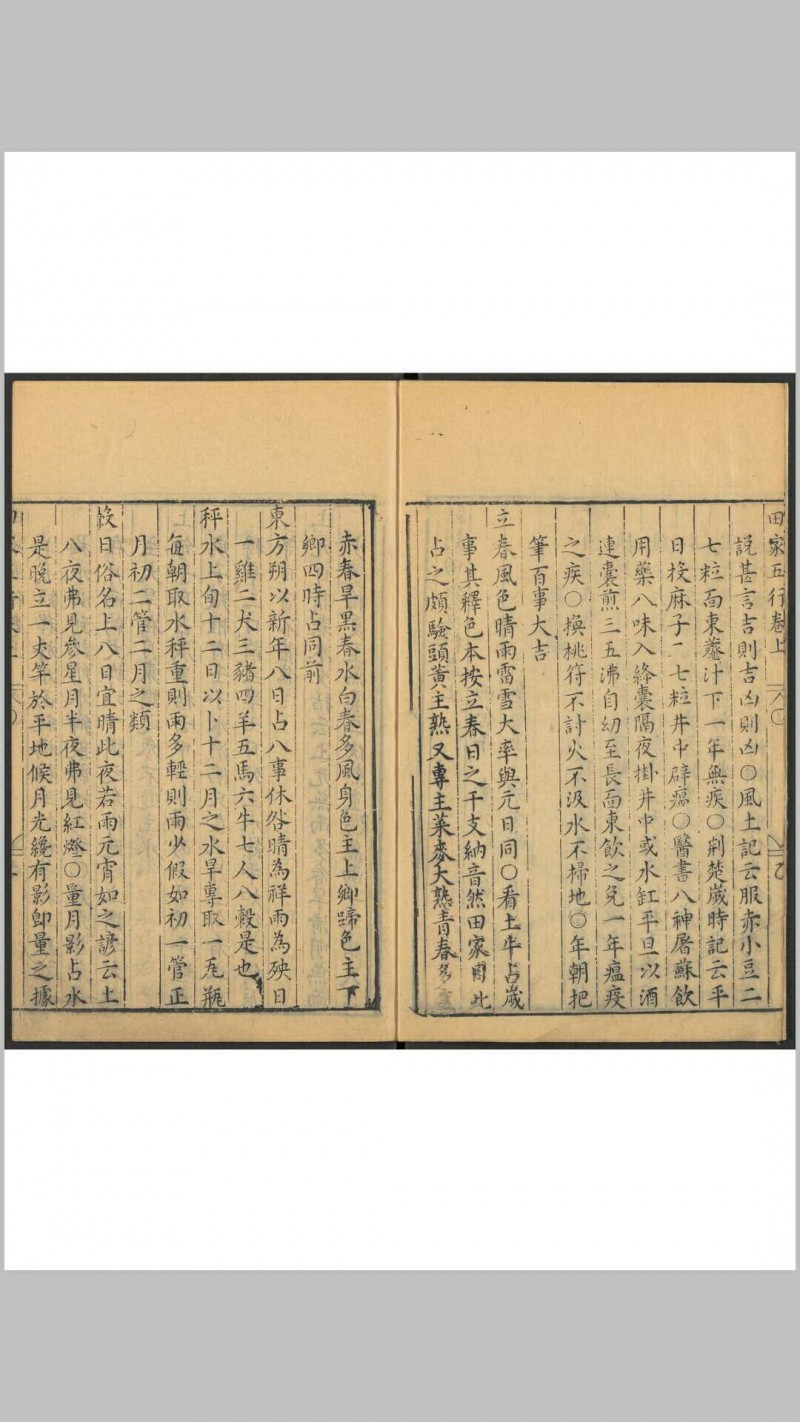 田家五行卷上
說甚言吉則吉凶則凶〇風土記云服赤小豆二
七粒面東虀汁下一年無疾〇荆楚歲時記云平
日投麻子二七粒井中辟瘟〇醫書八神屠蘇飲
用藥八味入絳囊隔夜掛井中或水缸平旦以酒
連囊煎三五沸自幼至長面東飲之免一年瘟疫
之疾〇換桃符不討火不汲水不掃地〇年朝把
筆百事大吉
立春風色晴雨雷雪大率與元日同〇看土牛占歲
事其釋色本按立春日之干支納音然田家因此
占之頗驗頭黃主熟又專主菜麥大熟青春多
赤春旱黑春水白春多風身色主上卿蹄色主下
卿四時占同前
東方朔以新年八日占八事休咎晴為祥雨為殃日
一雞二犬三豬四羊五馬六牛七人八穀是也
秤水上旬十二日以卜十二月之水旱專取一瓦瓶
每朝取水秤重則雨多輕則雨少假如初一管正
月初二管二月之類
穀日俗名上八日宜晴此夜若雨元宵如之諺云上
八夜弗見參星月半夜弗見紅燈〇量月影占水
是晚立一丈竿於平地候月光纔有影卽量之據